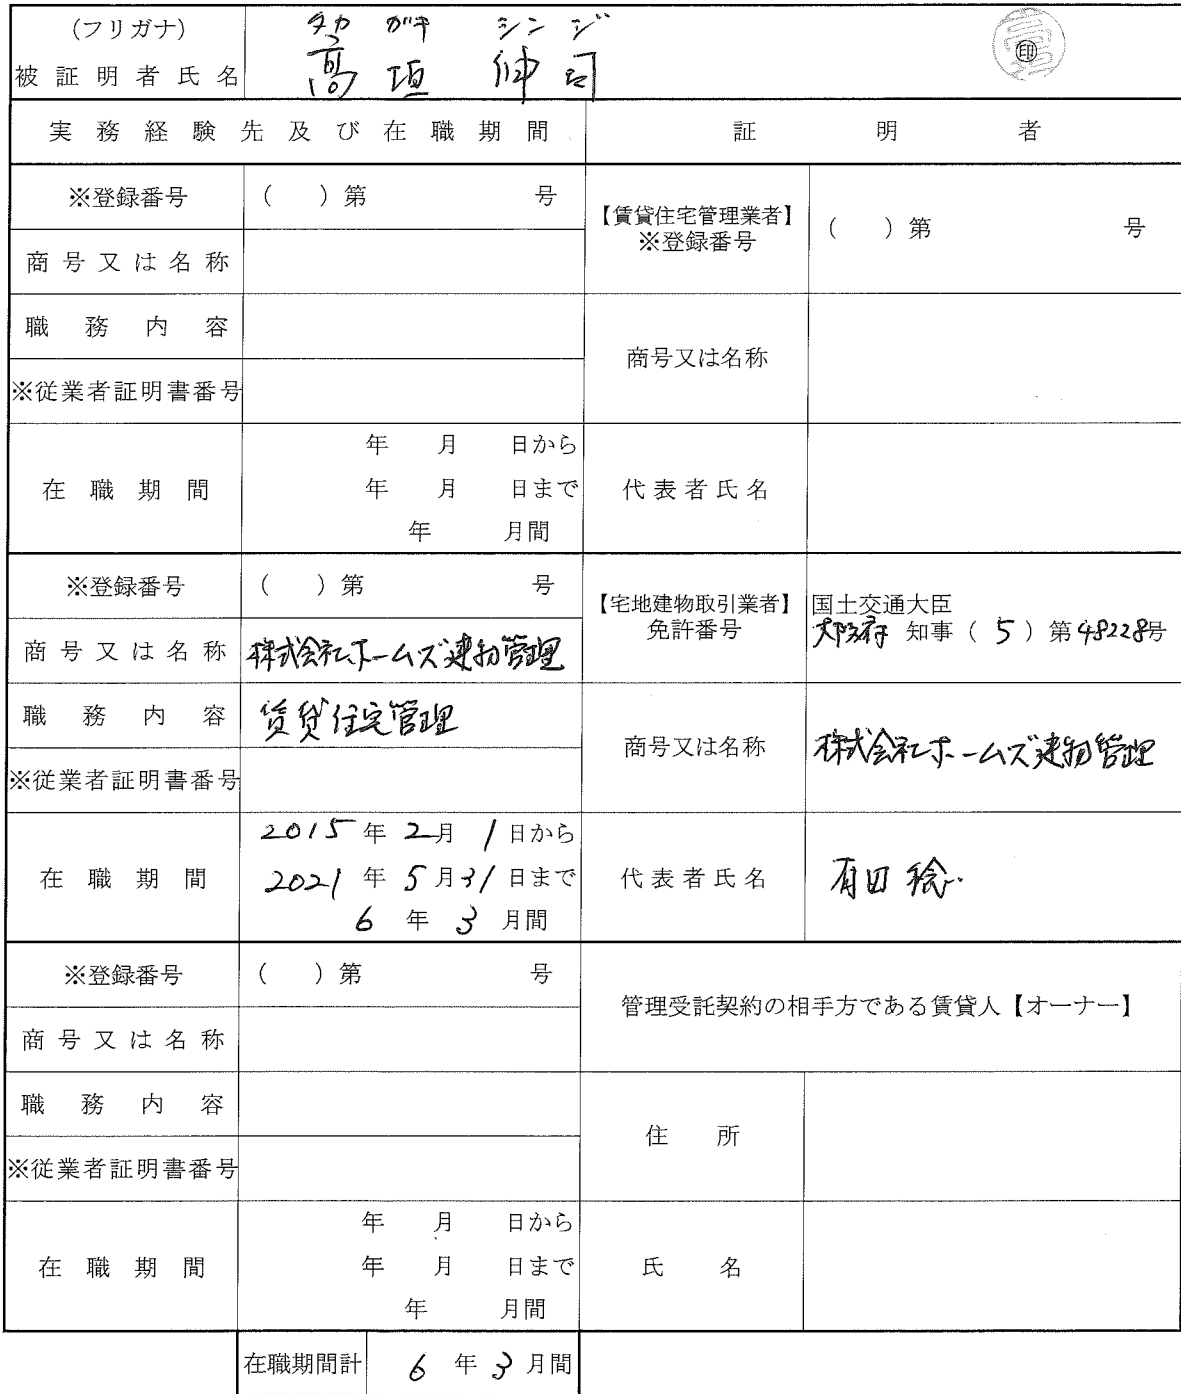 (フリガナ) タカ ガキ シンジ
被証明者氏名 髙垣 伸司 ㊞
実務経験先及び在職期間 証明者
※登録番号 ( )第 号
【賃貸住宅管理業者】
※登録番号 ( )第 号
商号又は名称
職務内容
商号又は名称
※従業者証明書番号
在職期間
年 月 日から
年 月 日まで
年 月間
代表者氏名
※登録番号 ( )第 号
【宅地建物取引業者】
免許番号
国土交通大臣
大阪府 知事( 5 )第48228号
商号又は名称 株式会社ホームズ建物管理
職務内容 賃貸住宅管理
商号又は名称 株式会社ホームズ建物管理
※従業者証明書番号
在職期間
2015年 2月 1日から
2021年 5月31日まで
6年 3月間
代表者氏名 有田
※登録番号 ( )第 号
管理受託契約の相手方である賃貸人【オーナー】
商号又は名称
職務内容
住所
※従業者証明書番号
在職期間
年 月 日から
年 月 日まで
年 月間
氏名
在職期間計 6年 3月間